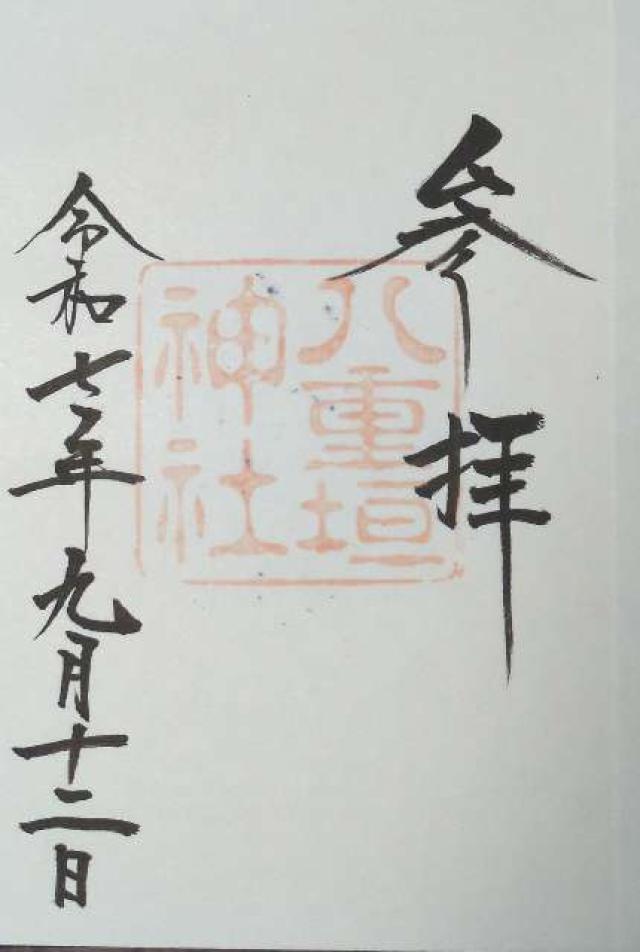 參拝
八重垣
神社
令和七年九月十二日